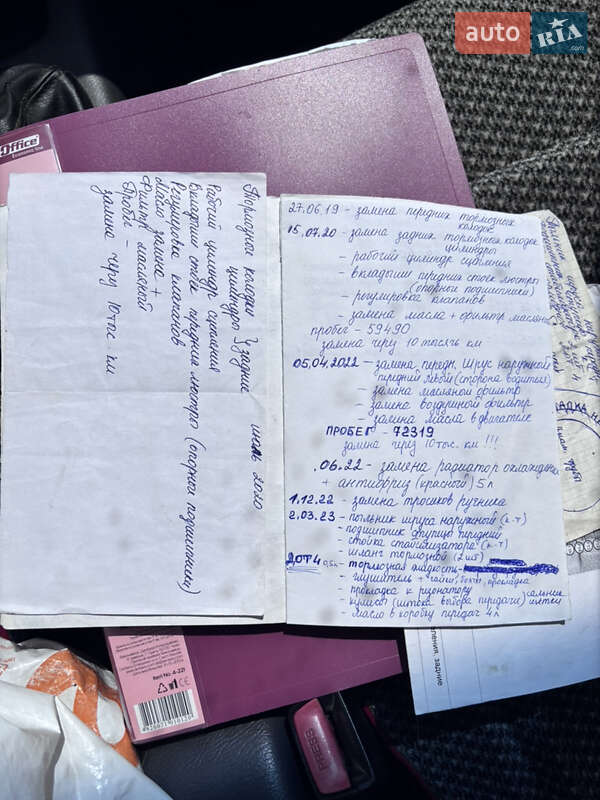 auto RIA
.com
Office
Economic line
Тормозные колодки
цилиндры } задние июль 2020
Рабочий цилиндр сцепления
Вкладыши стоек передних люстро (опорные подшипники)
Регулировка клапанов
Масло залила +
Фильтр масляной
Пробег –
замена через 10 тыс. км
27.06.19 – замена передних тормозных
колодок
15.07.20 – замена задних тормозных колодок
цилиндры
– рабочий цилиндр сцепления
– вкладыши передних стоек люстры
(опорные подшипники)
– регулировка клапанов
– замена масла + фильтр масляной
пробег – 59490
замена через 10 тысяч км
05.04.2022 – замена передн. Шрус наружный
передний левый (сторона водителя)
– замена масляной фильтр
– замена воздушной фильтр
– замена масла в двигателе
ПРОБЕГ – 72319
замена через 10 тыс. км !!!
.06.22 – замена радиатор охлаждения
+ антифриз (красный) 5л
1.12.22 – замена тросиков ручника
2.03.23 – пыльник шруса наружный (к-т)
– подшипник ступицы передний
– стойка стабилизатора (к-т)
– шланг тормозной (2 шт)
ДОТ4 0,5л – тормозная жидкость
– глушитель + гайки, болт, прокладка
– прокладка к резонатору
– кулисы (штока выбора передачи) сальник
– масло в коробку передач 4л
Item No. 4-221
PRESS
вления, задние